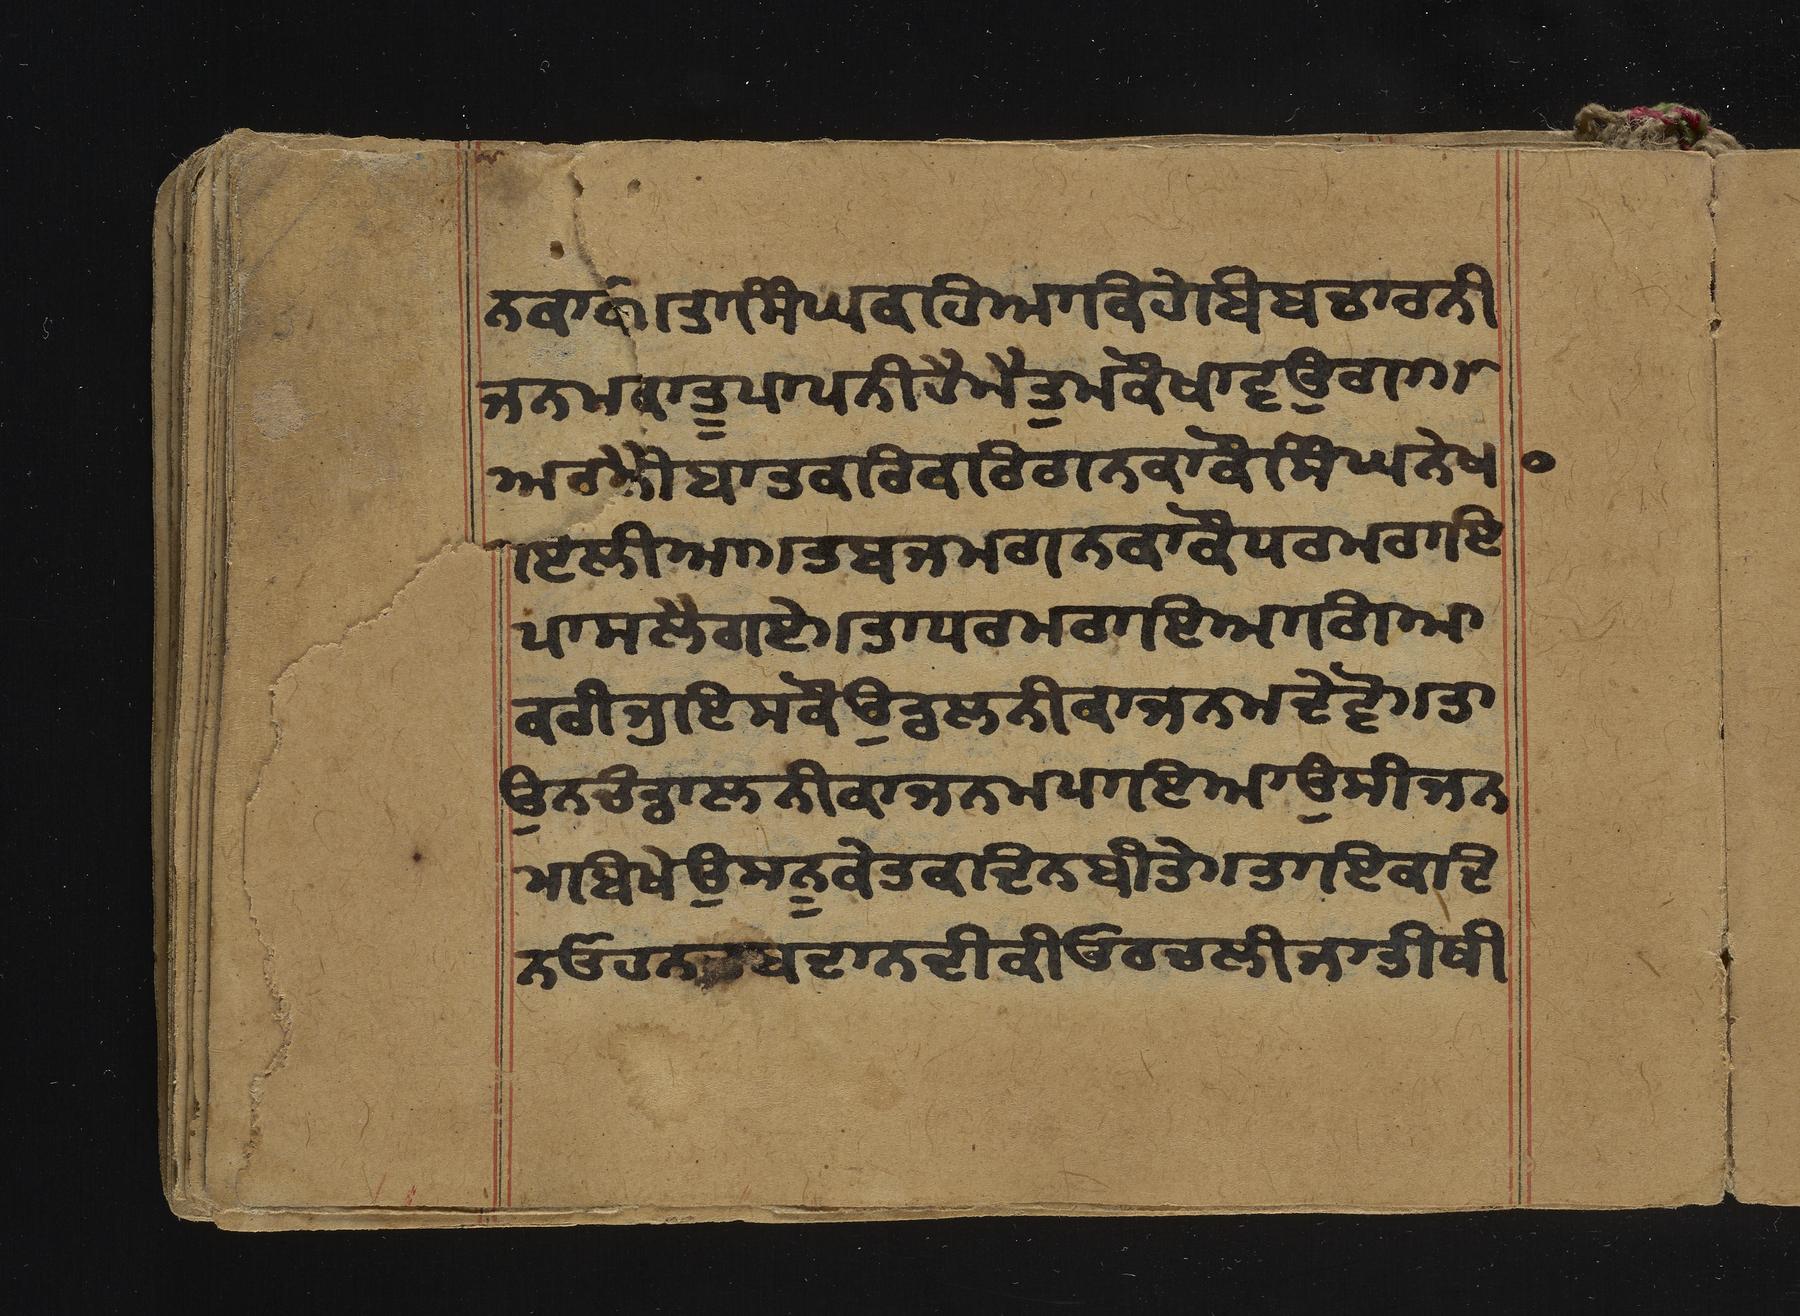 ਨਕਾਕੀ।ਤਾਸਿੰਘਕਹਿਆਕਿਹੇਬਿਬਚਾਰਨੀ
ਜਨਮਕਾਤੂਪਾਪਨੀਹੈਮੈਤੂਮਕੌਖਾਵੁਗਾ।
ਅਰਐਸੀਬਾਤਕਰਿਕਰਿਗਨਕਾਕੌਸਿੰਘਨੇਖ
ਾਇਲੀਆ।ਤਬਜਮਗਨਕਾਕੌਧਰਮਰਾਇ
ਪਾਸਲੈਗਏ।ਤਾਧਰਮਰਾਇਆਗਿਆ
ਕਰੀਜੁਇਸਕੌਉਚੂਲਨੀਕਾਜਨਮਦੇਵੋ।ਤਾ
ਉਨਚੰਡਾਲਨੀਕਾਜਨਮਪਾਇਆਉਸੀਜਨ
ਮਬਿਖੇਉਸਨੂਕੇਤਕਦਿਨਬੀਤੇ।ਤਾਇਕਦਿ
ਨਓਹਨ ਦਾਨਦੀਕੀਓਰਚਲੀਜਾਤੀਥੀ